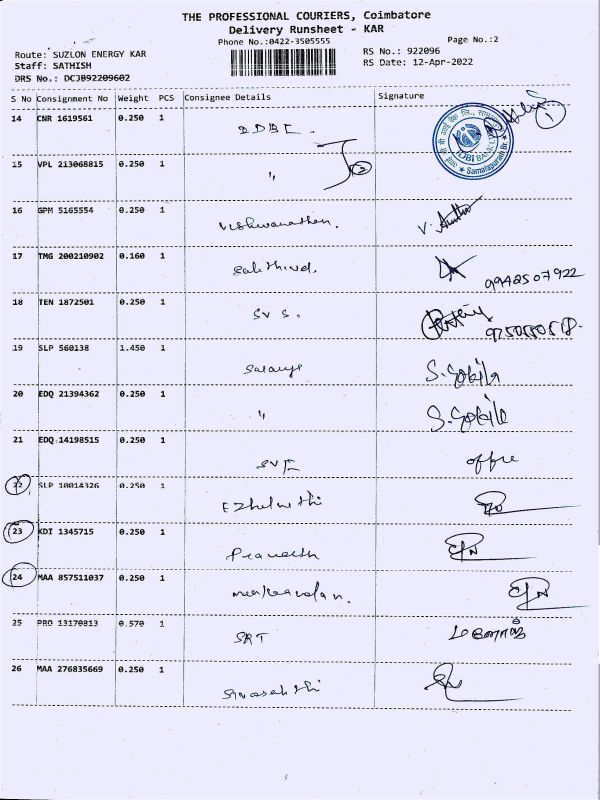 THE PROFESSIONAL COURIERS, Coimbatore
Delivery Runsheet - KAR
Phone No.:0422-3505555
Page No.:2
Route: SUZLON ENERGY KAR
RS No.: 922096
Staff: SATHISH
RS Date: 12-Apr-2022
DRS No.: DCJB92209602
S No Consignment No Weight PCS Consignee Details Signature
14 CNR 1619561 0.250 1
IDBI BANK
Samalapuram Br.
1
15 VPL 213068815 0.250 1 " 2
16 GPM 5165554 0.250 1 Vishwanathan.
17 TMG 200210902 0.160 1 Sakthivel. 9942507922
18 TEN 1872501 0.250 1 SV S.
19 SLP 560138 1.450 1 Saranya S. Gokila
20 EDQ 21394362 0.250 1 " S. Gokila
21 EDQ 14198515 0.250 1 SVE office
22 SLP 10014326 0.250 1 Ezhilarathi
23 KDI 1345715 0.250 1 Praneeth
24 MAA 857511037 0.250 1
25 PRO 13170813 0.570 1 SRT
26 MAA 276835669 0.250 1 Sivasakthi